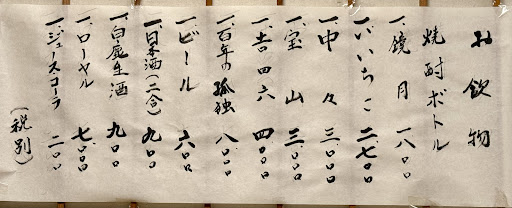 お飲物
焼酎ボトル
一、鏡月 一八.〇〇
一、いいちこ 二、七〇〇
一、中々 三、〇〇〇
一、宝山 三、〇〇〇
一、吉四六 四、〇〇〇
一、百年の孤独 八、〇〇〇
一、ビール 六〇〇
一、日本酒(二合) 九〇〇
一、白鹿生酒 九〇〇
一、ローヤル 七、〇〇〇
一、ジュースコーラ 二〇〇
(税別)